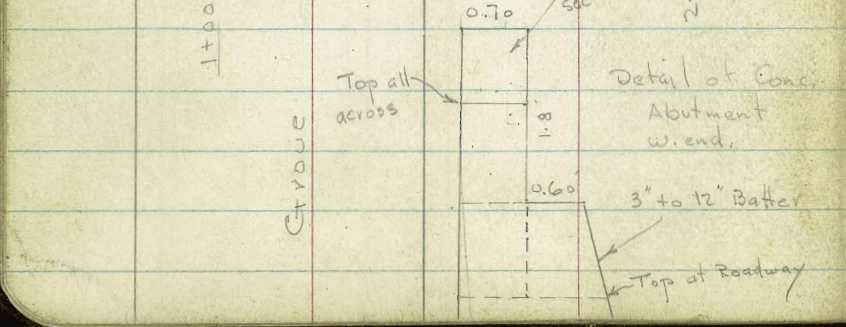 1+00
Grove
0.70
Top all
across
1.8
0.60
Detail of Conc.
Abutment
w. end.
3" to 12" Batter
Top at Roadway